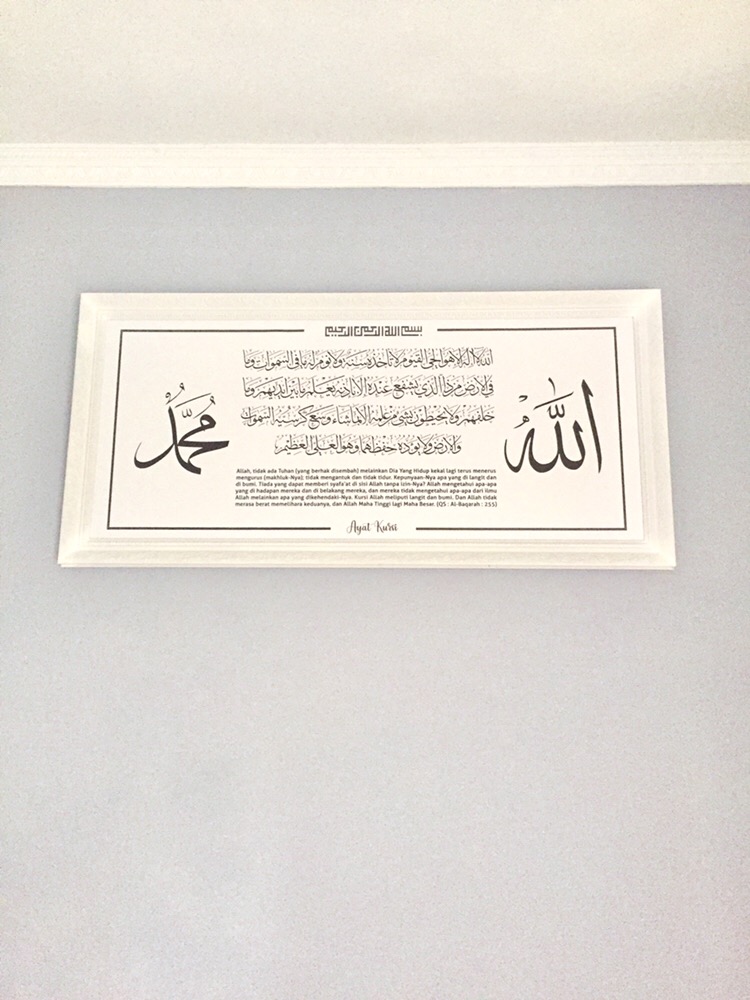 بسم الله الرحمن الرحيم
الله لا إله إلا هو الحي القيوم لا تأخذه سنة ولا نوم له ما في السموات وما
في الأرض من ذا الذي يشفع عنده إلا بإذنه يعلم ما بين أيديهم وما
خلفهم ولا يحيطون بشيء من علمه إلا بما شاء وسع كرسيه السموات
والأرض ولا يؤده حفظهما وهو العلي العظيم
الله
محمد
Allah, tidak ada Tuhan (yang berhak disembah) melainkan Dia Yang Hidup kekal lagi terus menerus
mengurus (makhluk-Nya); tidak mengantuk dan tidak tidur. Kepunyaan-Nya apa yang di langit dan
di bumi. Tiada yang dapat memberi syafa'at di sisi Allah tanpa izin-Nya? Allah mengetahui apa-apa
yang di hadapan mereka dan di belakang mereka, dan mereka tidak mengetahui apa-apa dari ilmu
Allah melainkan apa yang dikehendaki-Nya. Kursi Allah meliputi langit dan bumi. Dan Allah tidak
merasa berat memelihara keduanya, dan Allah Maha Tinggi lagi Maha Besar. (QS : Al-Baqarah : 255)
Ayat Kursi